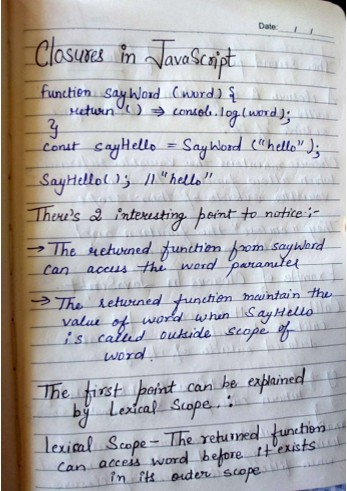 Date: / /
Closures in JavaScript
function sayWord (word) {
return () => console.log(word);
}
const sayHello = SayWord ("hello");
SayHello(); // "hello"
There's 2 interesting point to notice:-
→ The returned function from sayWord
can access the word parameter
→ The returned function maintain the
value of word when SayHello
is called outside scope of
word.
The first point can be explained
by Lexical Scope.:
lexical Scope - The returned function
can access word before it exists
in its outer scope